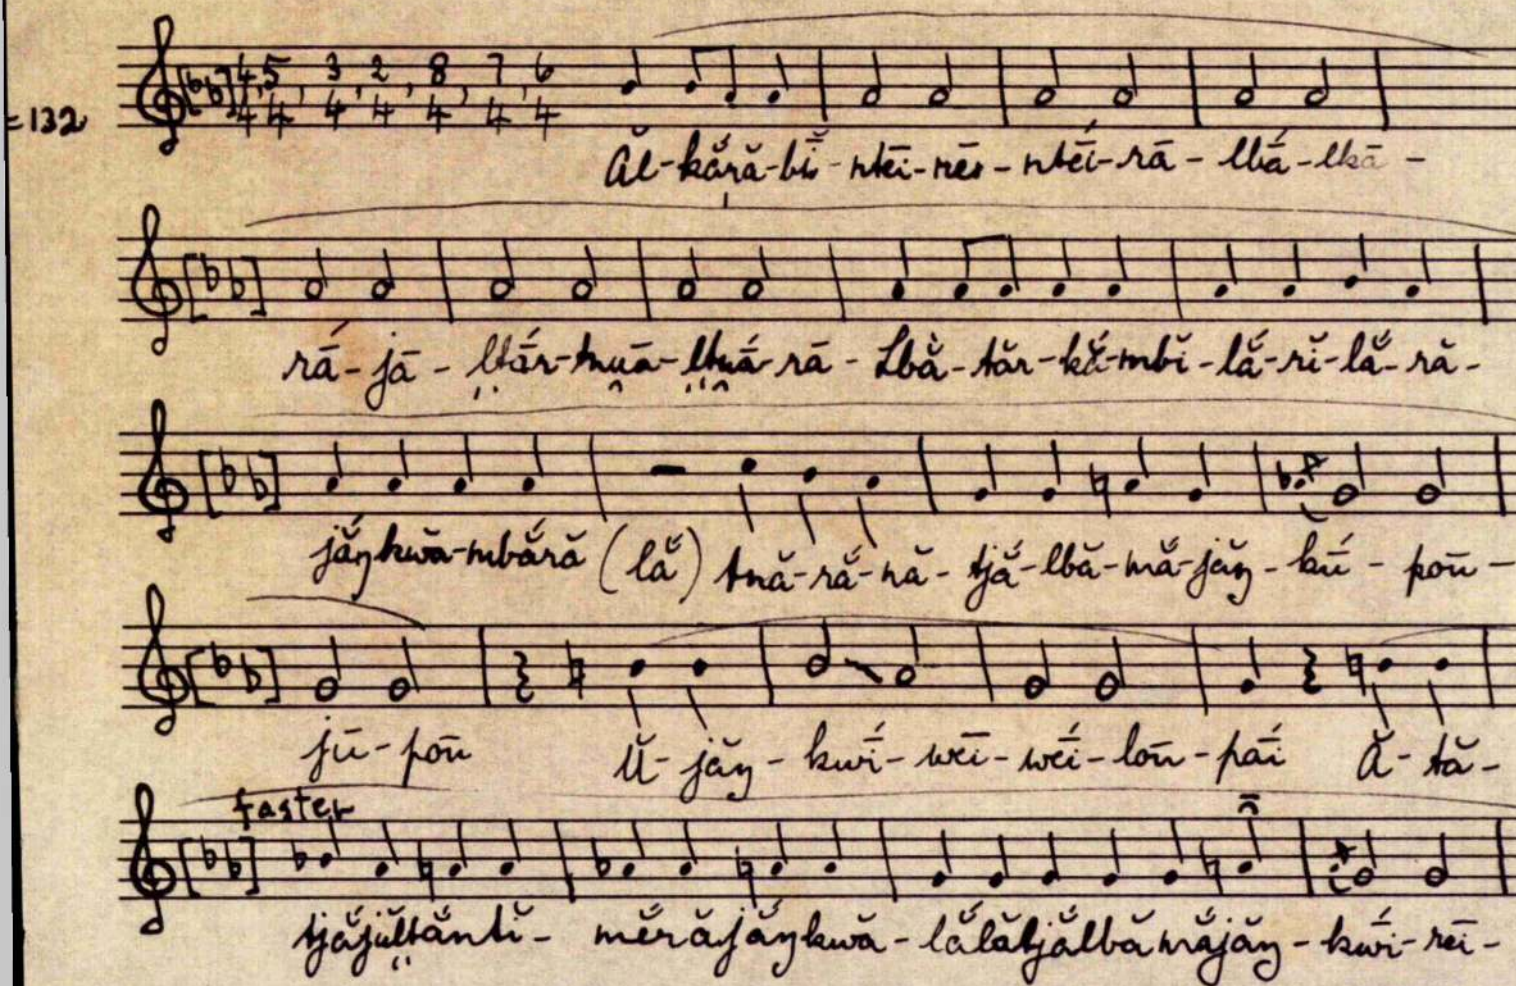 =132 4/4, 5/4, 3/4, 2/4, 8/4, 7/4, 6/4
Ăl-kắṛă-bī̆-ntēi-nēs-ntḗi-rā-lbā́-lkā-
rā́-jā-ḷṭā́r-tṇuā-ḷṭṇuā́-rā-Lbằ-tăr-kắ-mbĭ-lắ-rĭ-lắ-ră-
jắŋkwă-mbắră (lắ) tnă-rắ-nă-tjắ-lbă-mắ-jăŋ-kū́-pōū-
jū́-pōū Ŭ-jăŋ-kwī́-wēi-wḗi-lōū-pā́i Ă-tă-
faster
tjắjŭḷṭắntĭ-mĕ́răjắŋkwă-lắlătjắlbămắjăŋ-kwī́-rēi-